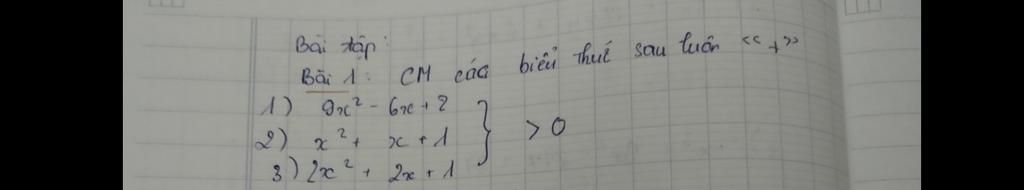 Bài tập:
Bài 1: CM các biểu thức sau luôn "+"
1) 9x² - 6x + 2
2) x² + x + 1 } > 0
3) 2x² + 2x + 1